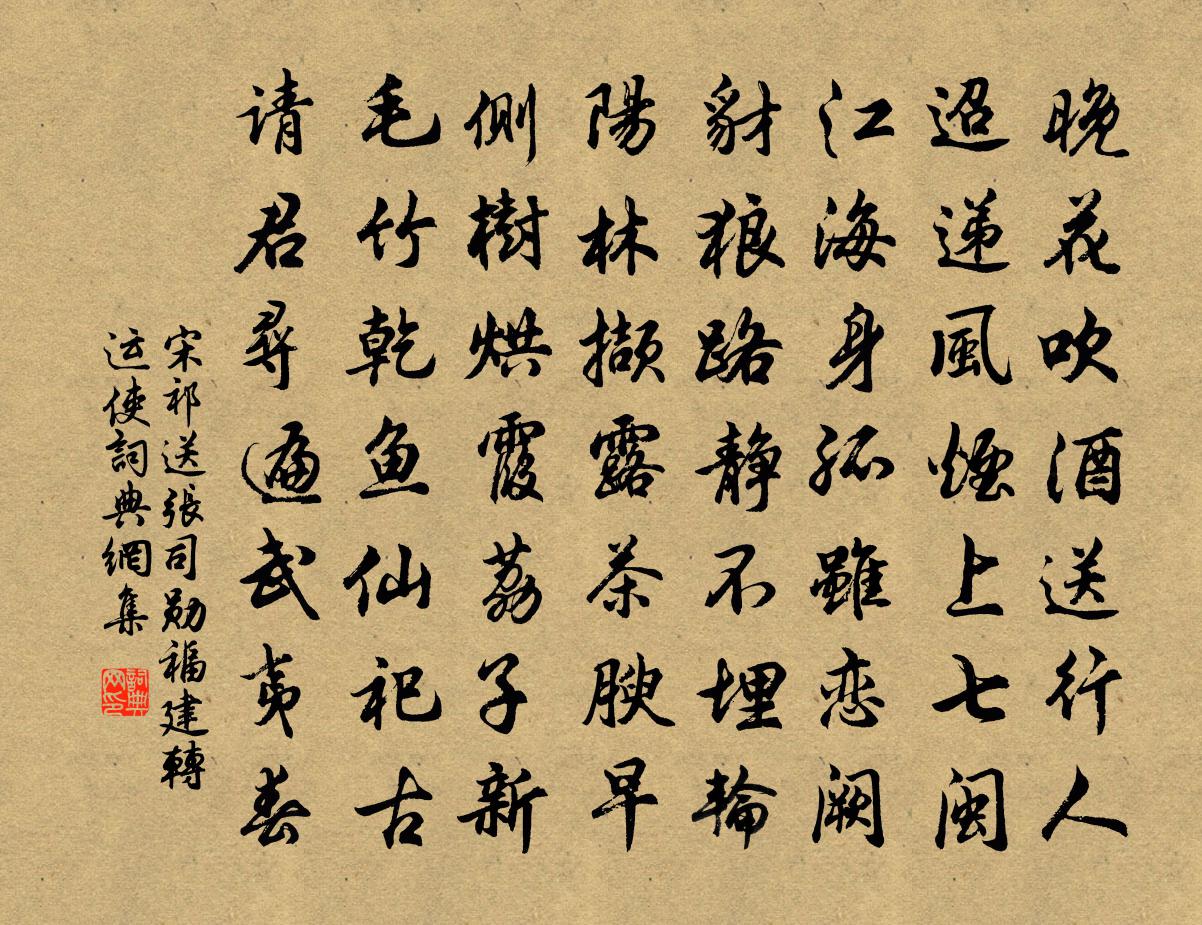 晚花吹酒送行人
迢递風煙上七闽
江海身孤雖恋阙
豺狼路静不埋輪
陽林擷露茶腴早
侧樹烘霞荔子新
毛竹乾鱼仙祀古
请君尋遍武夷春
宋祁送張司勋福建轉
运使詞典網集
詞典
网印